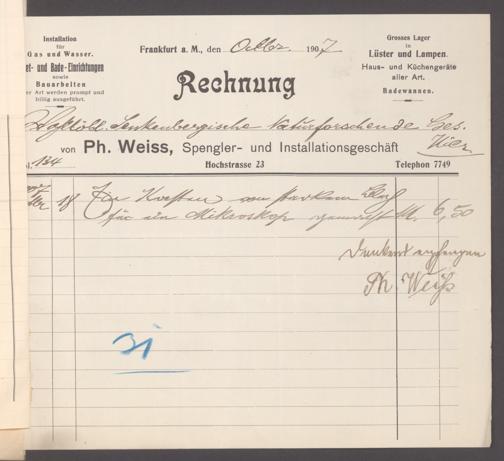 Installation
für
Gas und Wasser.
et- und Bade-Einrichtungen
sowie
Bauarbeiten
er Art werden prompt und
billig ausgeführt.
Frankfurt a. M., den Octber. 1907
Grosses Lager
in
Lüster und Lampen.
Haus- und Küchengeräte
aller Art.
Badewannen.
Rechnung
Senkenbergische Naturforschende Ges.
Hier
von Ph. Weiss, Spengler- und Installationsgeschäft
134
Hochstrasse 23
Telephon 7749
18 Ein Kasten von starkem Blech
für ein Mikroskop M. 6,50
Dankend empfangen
Ph. Weiß
31